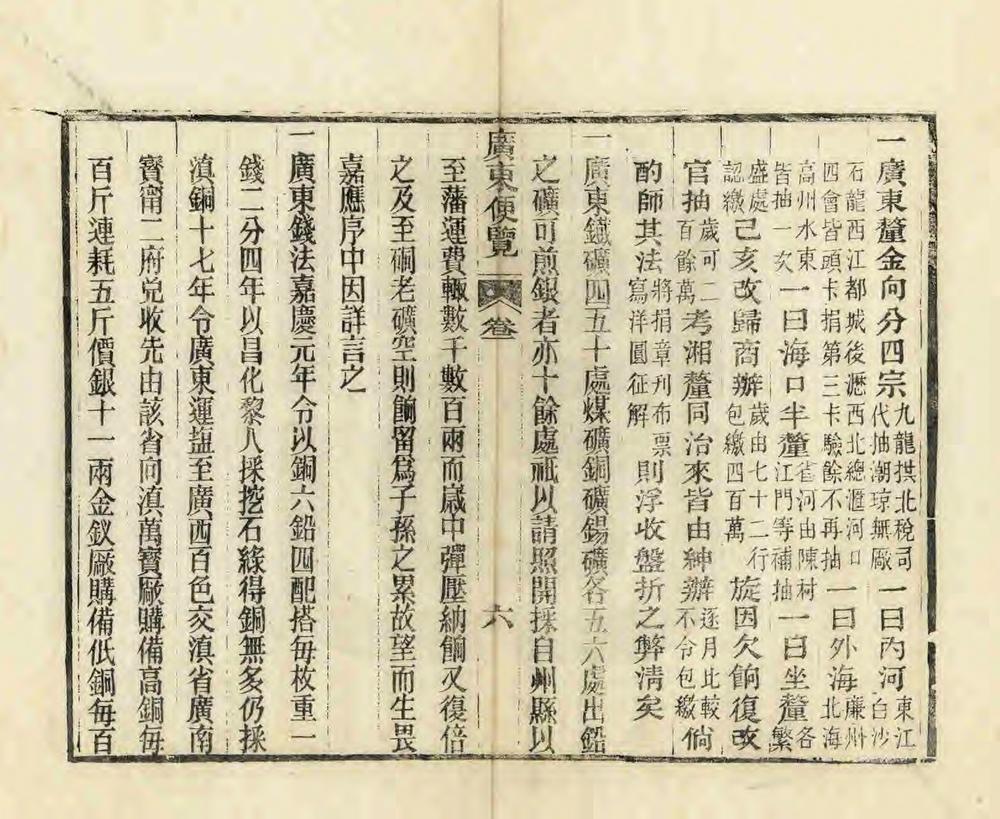 一廣東釐金向分四宗九龍拱北稅司代抽潮琼無厰一曰內河東江白沙
石龍西江都城後瀝西北總滙河口四會皆頭卡捐第三卡驗餘不再抽一曰外海廉州北海
高州水東皆抽一次一曰海口半釐省河由陳村江門等補抽一曰坐釐各繁
盛處認繳己亥改歸商辦歲由七十二行包繳四百萬旋因欠餉復改
官抽歲可二百餘萬考湘釐同治來皆由紳辦逐月比較不令包繳倘
酌師其法將捐章刊布票寫洋圓征解則浮收盤折之弊淸矣
一廣東鐵礦四五十處煤礦銅礦錫礦各五六處出鉛
之礦可煎銀者亦十餘處祇以請照開採自州縣以
廣東便覽 卷一 六
至藩運費輙數千數百兩而歲中彈壓納餉又復倍
之及至硐老礦空則餉留爲子孫之累故望而生畏
嘉應序中因詳言之
一廣東錢法嘉慶元年令以銅六鉛四配搭每枚重一
錢二分四年以昌化黎人採挖石綠得銅無多仍採
滇銅十七年令廣東運鹽至廣西百色交滇省廣南
寳甯二府兌收先由該省向滇萬寳厰購備高銅每
百斤連耗五斤價銀十一兩金釵厰購備低銅每百